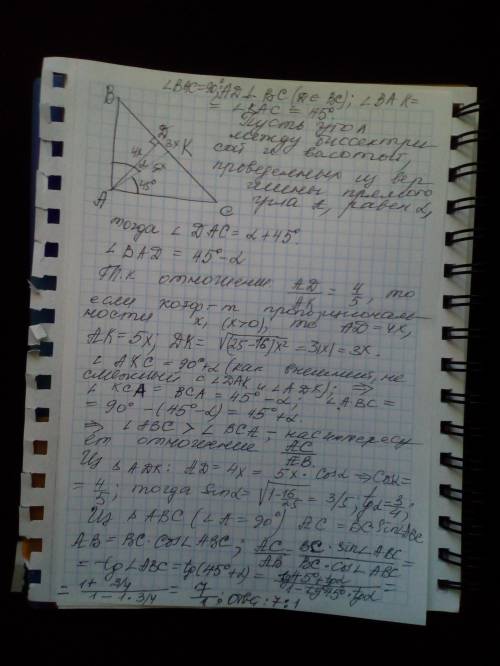 ∠BAC=90°; AD⊥BC (D∈BC); ∠BAK=
= ∠BAC = 45°.
Пусть угол
между биссектри-
сой и высотой,
проведенных из вер-
шины прямого
угла равен α,
B
D
4x
3x K
α
5x
45°
A
C
тогда ∠DAC = α+45°.
∠BAD = 45°-α
Т.к отношение AD/AK = 4/5, то
если коэф-т пропорциональ-
ности x, (x>0), то AD=4x,
AK=5x; DK= √(25-16)x² =3|x|=3x.
∠AKC = 90°+α (как внешний, не
смежный с ∠DAK и ∠ADK); ⇒
∠KCA = ∠BCA = 45°-α; ∠ABC =
= 90° -(45°-α) = 45°+α.
⇒ ∠ABC > ∠BCA; нас интересу
ет отношение AC/AB.
Из △ADK: AD = 4x = 5x·cosα ⇒ cosα=
= 4/5; тогда sinα= √1-16/25 = 3/5; tgα= 3/4;
Из △ABC (∠A = 90°) AC = BC·sin∠ABC
AB = BC·cos∠ABC; AC/AB = BC·sin∠ABC/BC·cos∠ABC =
= tg∠ABC = tg(45°+α) = tg45°+tgα/1-tg45°·tgα =
= 1+3/4/1-1·3/4 = 7/1; Ответ: 7:1